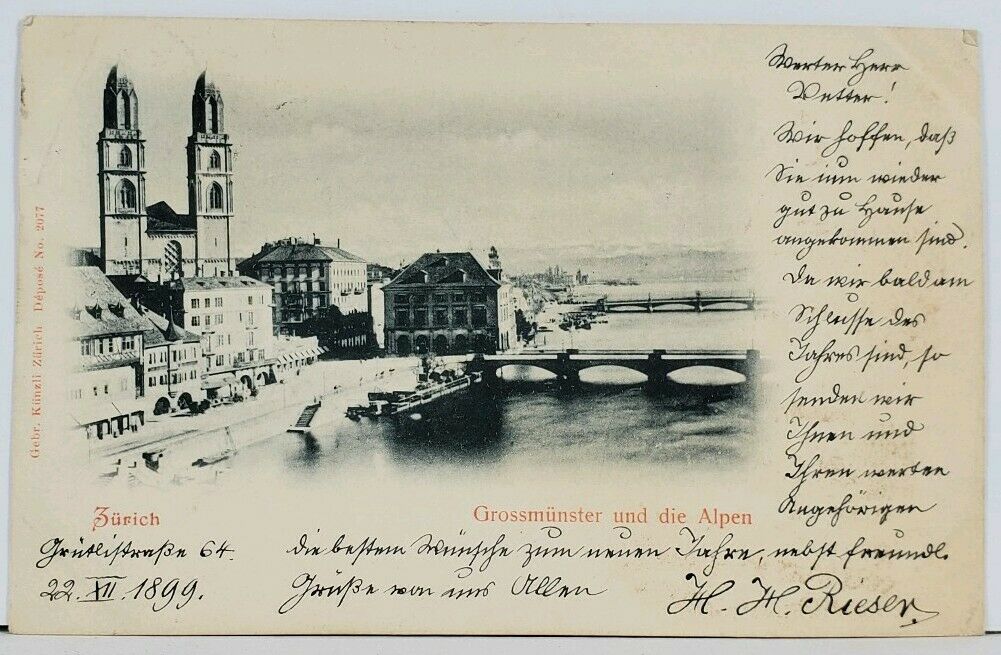 Werter Herr
Vetter!
Wir hoffen, daß
Sie nun wieder
gut zu Hause
angekommen sind.
Da wir bald am
Schlusse des
Jahres sind, so
senden wir
Ihnen und
Ihren werten
Angehörigen
die besten Wünsche zum neuen Jahre, nebst freundl.
Grüße von uns Allen
H. H. Rieser.
Grütlistraße 64.
22. XII. 1899.
Zürich
Grossmünster und die Alpen
Gebr. Künzli Zürich Déposé No. 2077